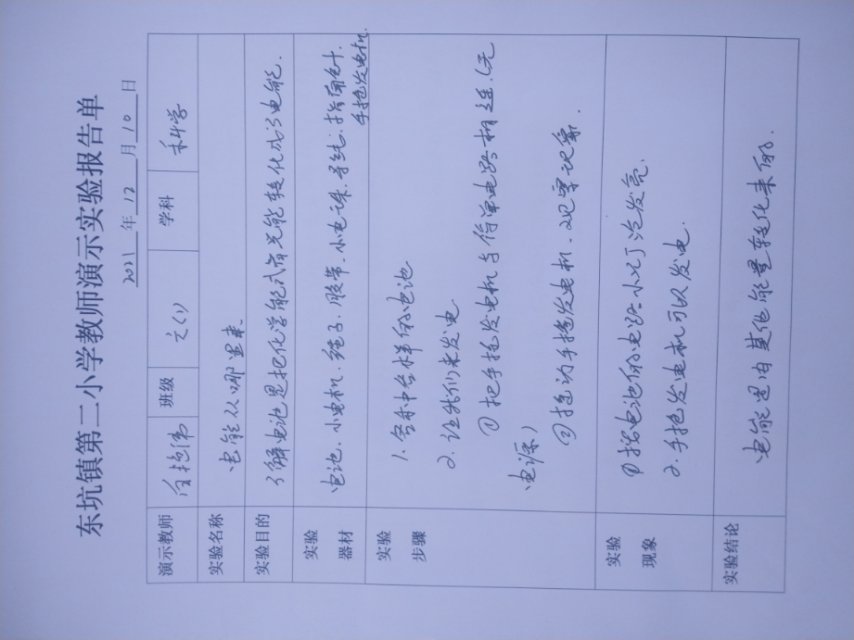 东坑镇第二小学教师演示实验报告单
2021 年 12 月 10 日
演示教师 班级 六(1) 学科 科学
实验名称 电能从哪里来
实验目的 了解电池是把化学能或者光能转化成了电能.
实验器材 电池、小电机、绳子、胶带、小电珠、导线、指南针、
手摇发电机
实验步骤 1. 各种各样的电池
2. 让我们来发电
① 把手摇发电机与简单电路相连(无
电源)
② 摇动手摇发电机、观察现象.
实验现象 ① 接电池的电路小灯泡发亮.
2. 手摇发电机可以发电.
实验结论 电能是由其他能量转化来的.